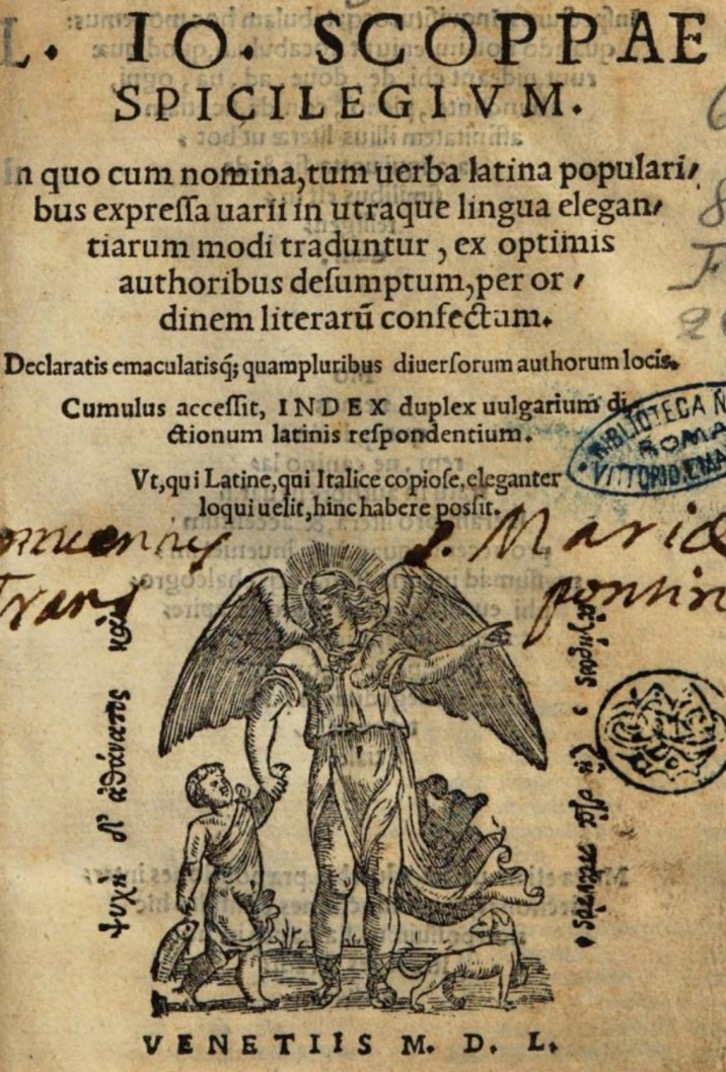 L. IO. SCOPPAE
SPICILEGIVM.
n quo cum nomina, tum uerba latina populari/
bus expreſſa uarii in utraque lingua elegan/
tiarum modi traduntur, ex optimis
authoribus deſumptum, per or /
dinem literarū confectum.
Declaratis emaculatisq́; quampluribus diuerſorum authorum locis.
Cumulus acceſſit, INDEX duplex uulgarium di
ctionum latinis reſpondentium.
Vt, qui Latine, qui Italice copioſe, eleganter
loqui uelit, hinc habere poſſit.
BIBLIOTECA
ROMA
VITTORIO EMA
S. Maria
ψυχὴ δ' ἀθάνατος
VENETIIS M. D. L.